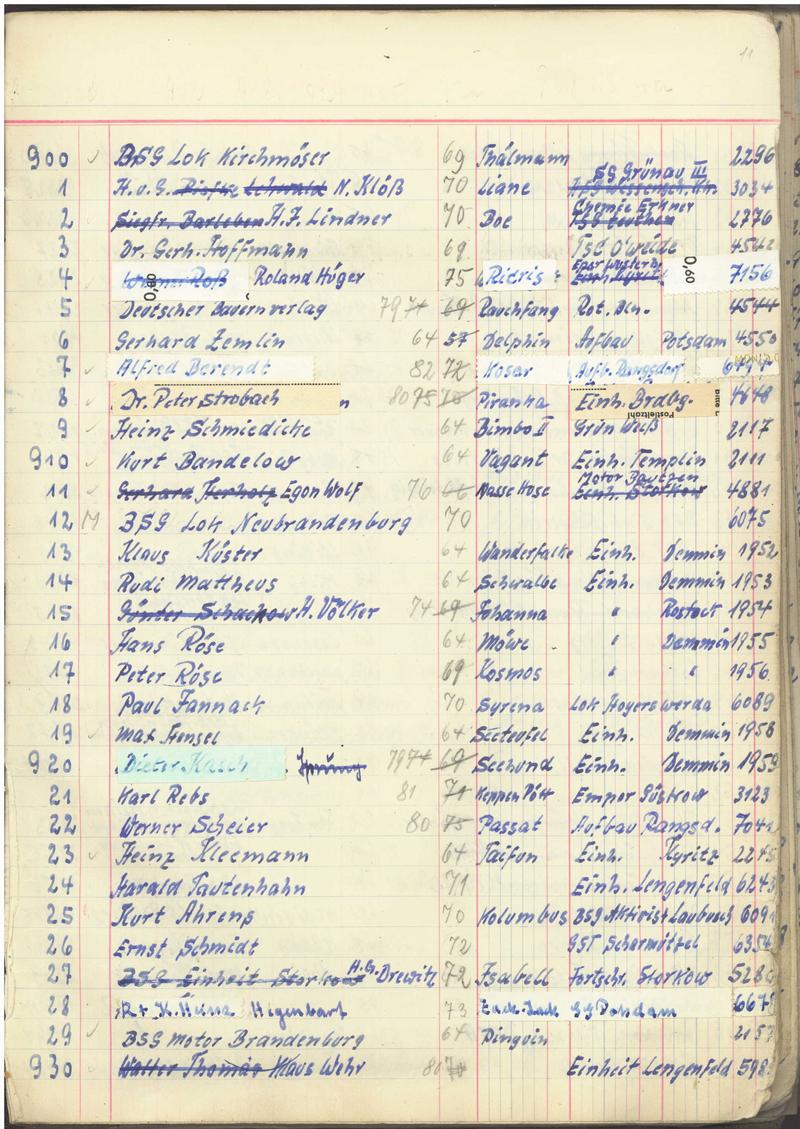 11
900 ✓ BSG Lok Kirchmöser 69 Thälmann 2296
1 ✓ H. u. G. Lehwald N. Klöß 70 Liane SG Grünau III 3034
2 ✓ Siegfr. Barleben H.J. Lindner 70 Boe Chemie Erkner 2776
3 Dr. Gerh. Hoffmann 69 TSC O'weide 4542
4 ✓ Werner Roß Roland Hüger 75 0,60 7156
5 Deutscher Bauernverlag 79 74 69 Rauchfang Rot. Bln. 4544
6 Gerhard Zemlin 64 57 Delphin Aufbau Potsdam 4550
7 ✓ Alfred Berendt 82 72 Kosar Aufb. Rangsdorf
8 ✓ Dr. Peter Strobach 80 75 Piranha Einh. Brdbg. 4648
Postleitzahl
9 ✓ Heinz Schmiedicke 64 Bimbo II Grün Weiß 2117
910 ✓ Kurt Bandelow 64 Vagant Einh. Templin 2111
11 ✓ Gerhard Herholz Egon Wolf 76 66 Nasse Hose Motor Bautzen Einh. Storkow 4881
12 M BSG Lok Neubrandenburg 70 6075
13 Klaus Küster 64 Wanderfalke Einh. Demmin 1952
14 Rudi Mattheus 64 Schwalbe Einh. Demmin 1953
15 Günter Schachow H. Völker 74 69 Johanna " Rostock 1954
16 Hans Röse 64 Möwe " Demmin 1955
17 Peter Röse 69 Kosmos " " 1956
18 Paul Jannack 70 Syrena Lok Hoyerswerda 6089
19 ✓ Max Hensel 64 Seeteufel Einh. Demmin 1958
920 Dieter Kasch Sprung 79 74 69 Seehund Einh. Demmin 1959
21 Karl Rebs 81 71 Keppen Pött Empor Güstrow 3123
22 Werner Scheier 80 75 Passat Aufbau Rangsd.
23 ✓ Heinz Kleemann 64 Taifun Einh. Kyritz
24 Harald Tautenhahn 71 Einh. Lengenfeld 6243
25 Kurt Ahrens 70 Kolumbus BSG Aktivist Laubusch
26 Ernst Schmidt 72 GST Scharmützel 6354
27 BSG Einheit Storkow H.G. Drewitz 72 Isabell Fortschr. Storkow
28 Hegenbart 73 SG Potsdam
29 ✓ BSG Motor Brandenburg 64 Pinguin
930 Walter Thomas Klaus Wehr 80 70 Einheit Lengenfeld